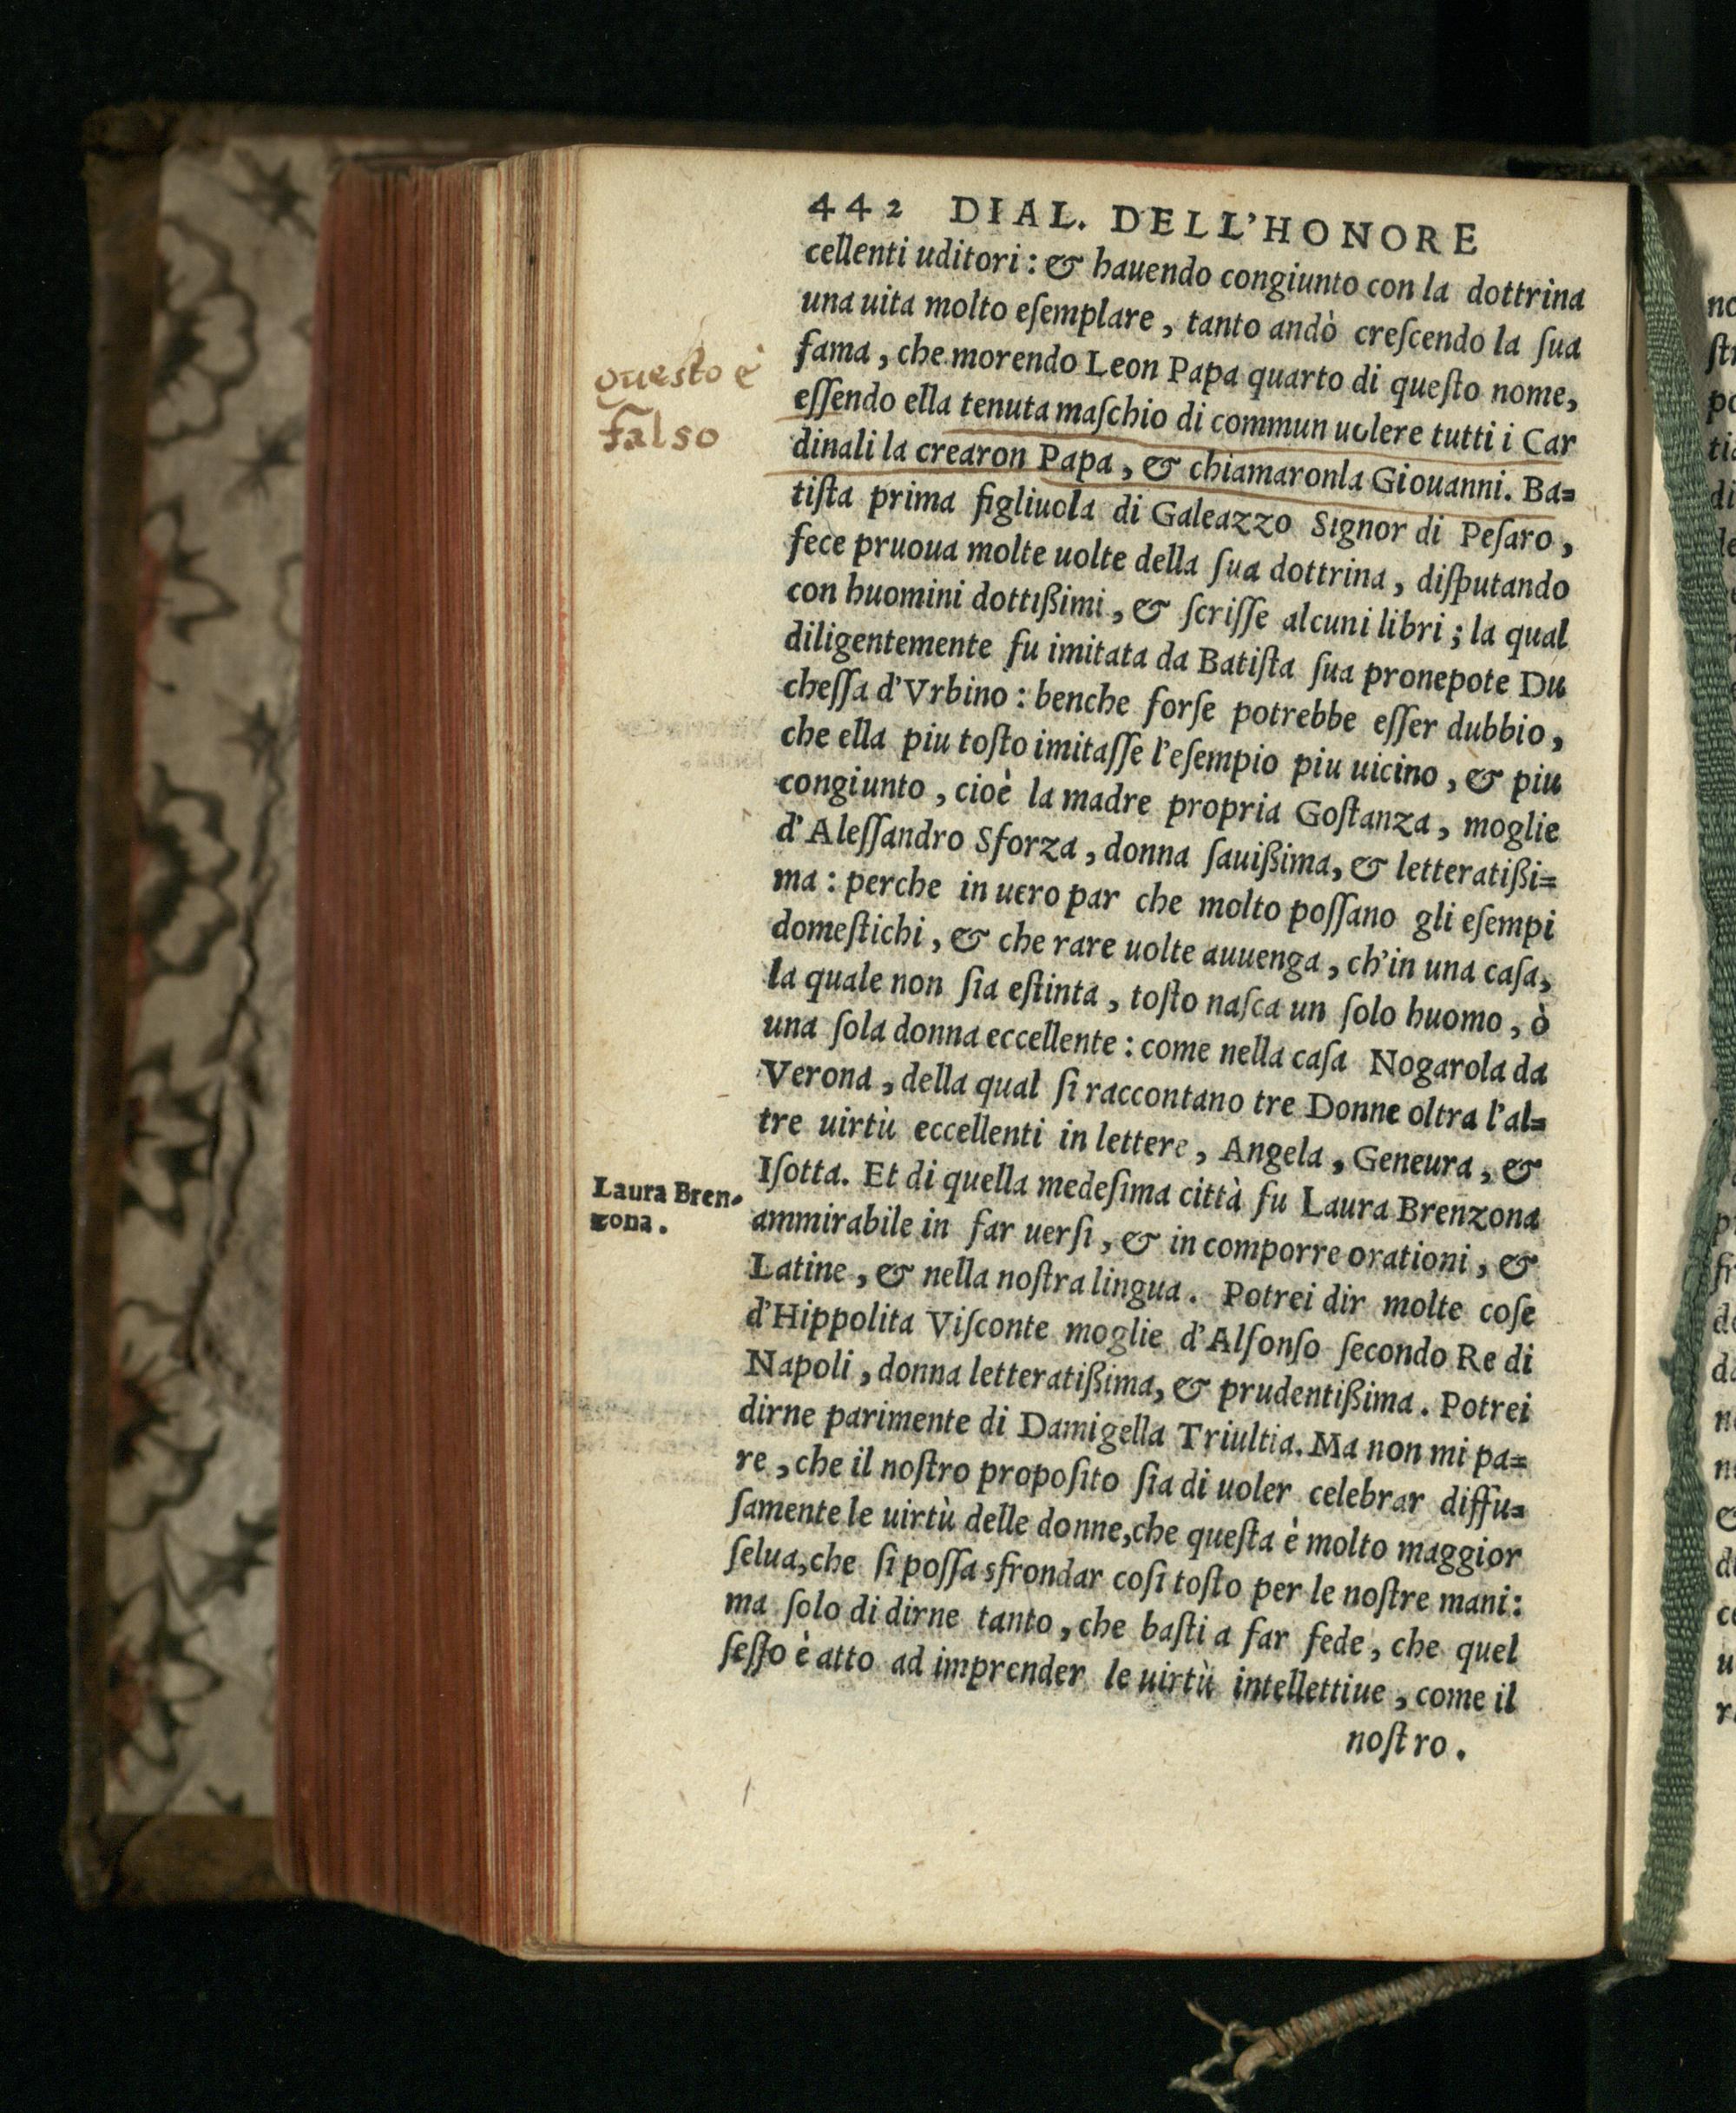 442 DIAL. DELL'HONORE
cellenti uditori: & hauendo congiunto con la dottrina
una uita molto eſemplare, tanto andò creſcendo la ſua
fama, che morendo Leon Papa quarto di queſto nome,
eſſendo ella tenuta maſchio di commun uolere tutti i Car
dinali la crearon Papa, & chiamaronla Giouanni. Ba=
tiſta prima figliuola di Galeazzo Signor di Peſaro,
fece pruoua molte uolte della ſua dottrina, diſputando
con huomini dottißimi, & ſcriſſe alcuni libri; la qual
diligentemente fu imitata da Batiſta ſua pronepote Du
cheſſa d'Vrbino: benche forſe potrebbe eſſer dubbio,
che ella piu toſto imitaſſe l'eſempio piu uicino, & piu
congiunto, cioè la madre propria Goſtanza, moglie
d'Aleſſandro Sforza, donna ſauißima, & letteratißi=
ma: perche in uero par che molto poſſano gli eſempi
domeſtichi, & che rare uolte auuenga, ch'in una caſa,
la quale non ſia eſtinta, toſto naſca un ſolo huomo, ò
una ſola donna eccellente: come nella caſa Nogarola da
Verona, della qual ſi raccontano tre Donne oltra l'al=
tre uirtù eccellenti in lettere, Angela, Geneura, &
Iſotta. Et di quella medeſima città fu Laura Brenzona
ammirabile in far uerſi, & in comporre orationi, &
Latine, & nella noſtra lingua. Potrei dir molte coſe
d'Hippolita Viſconte moglie d'Alfonſo ſecondo Re di
Napoli, donna letteratißima, & prudentißima. Potrei
dirne parimente di Damigella Triultia. Ma non mi pa=
re, che il noſtro propoſito ſia di uoler celebrar diffu=
ſamente le uirtù delle donne, che queſta è molto maggior
ſelua, che ſi poſſa sfrondar coſi toſto per le noſtre mani:
ma ſolo di dirne tanto, che baſti a far fede, che quel
ſeſſo è atto ad imprender le uirtù intellettiue, come il
noſtro.
questo è
falso
Laura Bren-
zona.